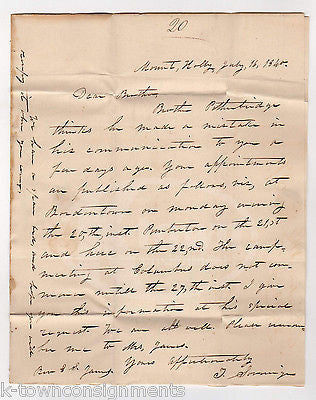 20
Mount Holly July 16, 1840.
Dear Brother
Brother Petherbridge
thinks he made a mistake in
his communication to you a
few days ago. Your appointments
are published as follows, viz, at
Bordentown on monday evening
the 20th inst. Pemberton on the 21st
and here on the 22nd. The camp-
meeting at Columbus does not com-
mence untill the 27th inst. I give
you this information at his special
request. We are all well. Please remem
ber me to Mrs. Janes.
Yours affectionately
Rev. E. S. Janes
We have a spare bed, and hope you will
occupy it when you come.
k-townconsignments